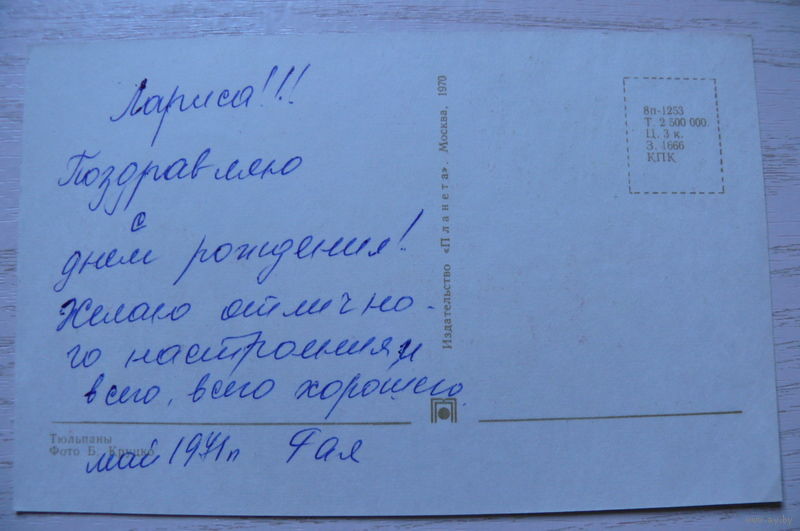 Лариса!!!
Поздравляю
с
днем рождения!
Желаю отлично-
го настроения и
всего, всего хорошего.
май 1971г Рая
Тюльпаны
Фото Б.
Издательство «Планета». Москва, 1970
8п-1253
Т. 2 500 000.
Ц. 3 к.
З. 1666
КПК